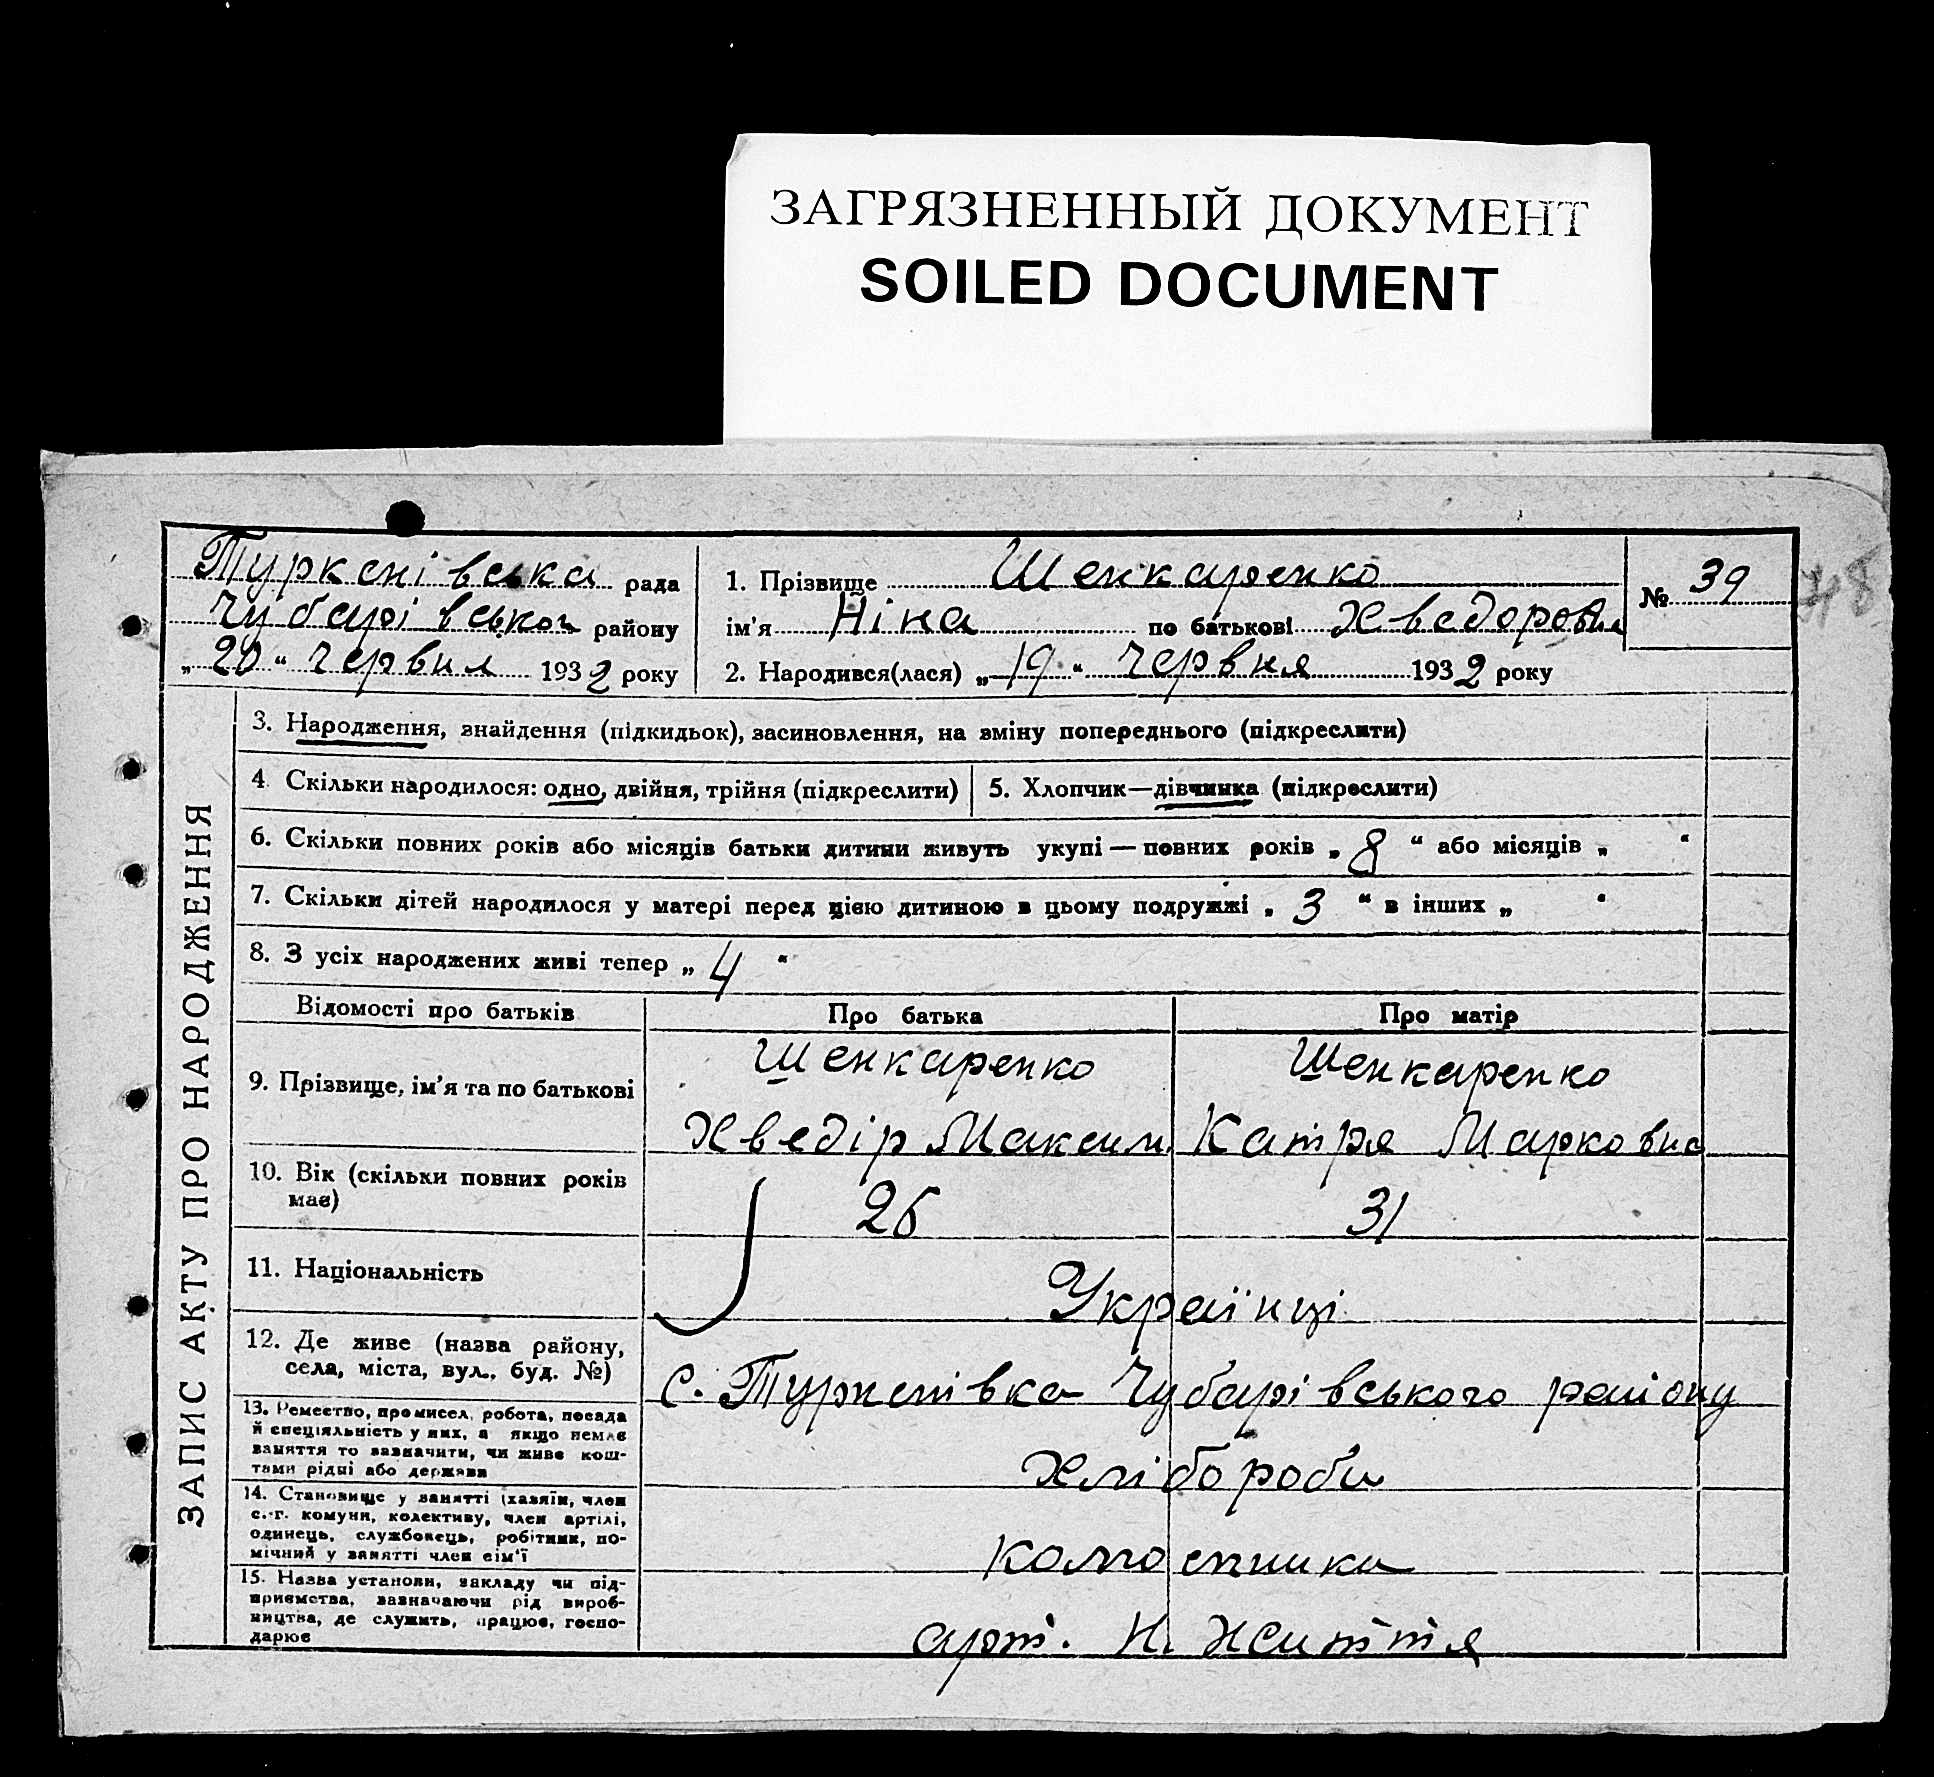 ЗАГРЯЗНЕННЫЙ ДОКУМЕНТ
SOILED DOCUMENT
Туркенівська рада
Чубарівськог району
„ 20 “ Червня 1932 року
1. Прізвище Шенкаренко
ім'я Ніна по батькові Хведоровна
2. Народився(лася) „ 19 “ Червня 1932 року
№ 39
48
ЗАПИС АКТУ ПРО НАРОДЖЕННЯ
3. Народження, знайдення (підкидьок), засиновлення, на зміну попереднього (підкреслити)
4. Скільки народилося: одно, двійня, трійня (підкреслити)
5. Хлопчик—дівчинка (підкреслити)
6. Скільки повних років або місяців батьки дитини живуть укупі — повних років „ 8 “ або місяців „ “
7. Скільки дітей народилося у матері перед цією дитиною в цьому подружжі „ 3 “ в інших „ “
8. З усіх народжених живі тепер „ 4 “
Відомості про батьків
Про батька
Про матір
9. Прізвище, ім'я та по батькові
Шенкаренко
Хведір Максим.
Шенкаренко
Катря Марковна
10. Вік (скільки повних років
має)
26
31
11. Національність
Українці
12. Де живе (назва району,
села, міста, вул., буд. №)
с. Туркенівка Чубарівського району
13. Ремество, промисел, робота, посада
й спеціяльність у них, а якщо немає
заняття то зазначити, чи живе кош-
тами рідні або держави
Хлібороби
14. Становище у занятті (хазяїн, член
с.-г. комуни, колективу, член артілі,
одинець, службовець, робітник, по-
мічний у занятті член сім'ї
15. Назва установи, закладу чи під-
приємства, зазначаючи рід вироб-
ництва, де служить, працює, госпо-
дарює
арт. Н. Життя